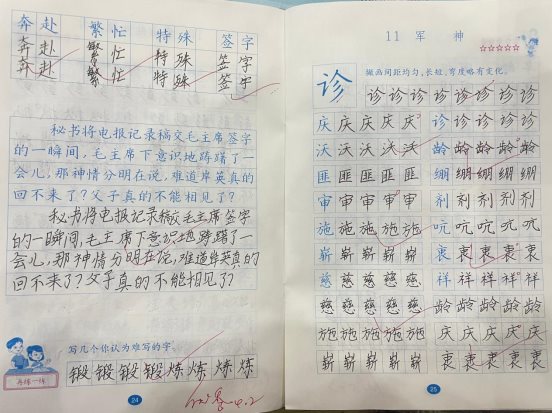 奔 赴 繁 忙 特 殊 签 字
奔 赴 繁 忙 特 殊 签 字
奔 赴 繁 忙 特 殊 签 字
秘书将电报记录稿交毛主席签字
的一瞬间，毛主席下意识地踌躇了一
会儿，那神情分明在说，难道岸英真的
回不来了？父子真的不能相见了？
秘书将电报记录稿交毛主席签字
的一瞬间，毛主席下意识地踌躇了一
会儿，那神情分明在说，难道岸英真的
回不来了？父子真的不能相见了？
写几个你认为难写的字。
再练一练
锻 锻 锻 锻 炼 炼 炼 炼
24
4.2
11 军 神
☆☆☆☆☆
撇画间距均匀，长短、弯度略有变化。
诊 诊 诊 诊 诊 诊 诊 诊 诊
庆 庆 庆 庆 庆 诊 诊 诊 诊 诊
沃 沃 沃 沃 沃 龄 龄 龄 龄 龄
匪 匪 匪 匪 匪 绷 绷 绷 绷 绷
审 审 审 审 审 剂 剂 剂 剂 剂
施 施 施 施 施 吭 吭 吭 吭 吭
崭 崭 崭 崭 崭 衷 衷 衷 衷 衷
慈 慈 慈 慈 慈 祥 祥 祥 祥 祥
慈 慈 慈 慈 慈 龄 龄 龄 龄 龄
施 施 施 施 施 庆 庆 庆 庆 庆
崭 崭 崭 崭 崭 衷 衷 衷 衷 衷
25